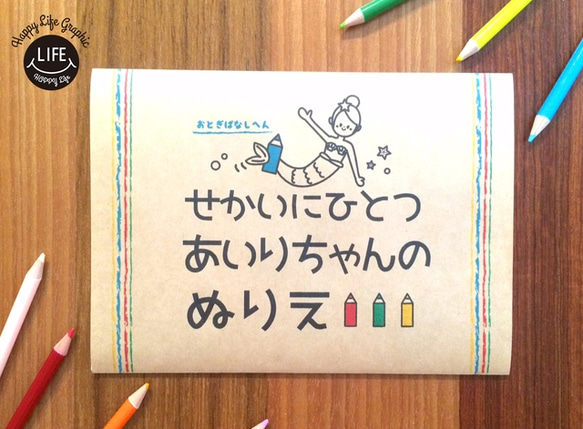 Happy Life Graphic
LIFE
Happy Life
おとぎばなしへん
せかいにひとつ
あいりちゃんの
ぬりえ